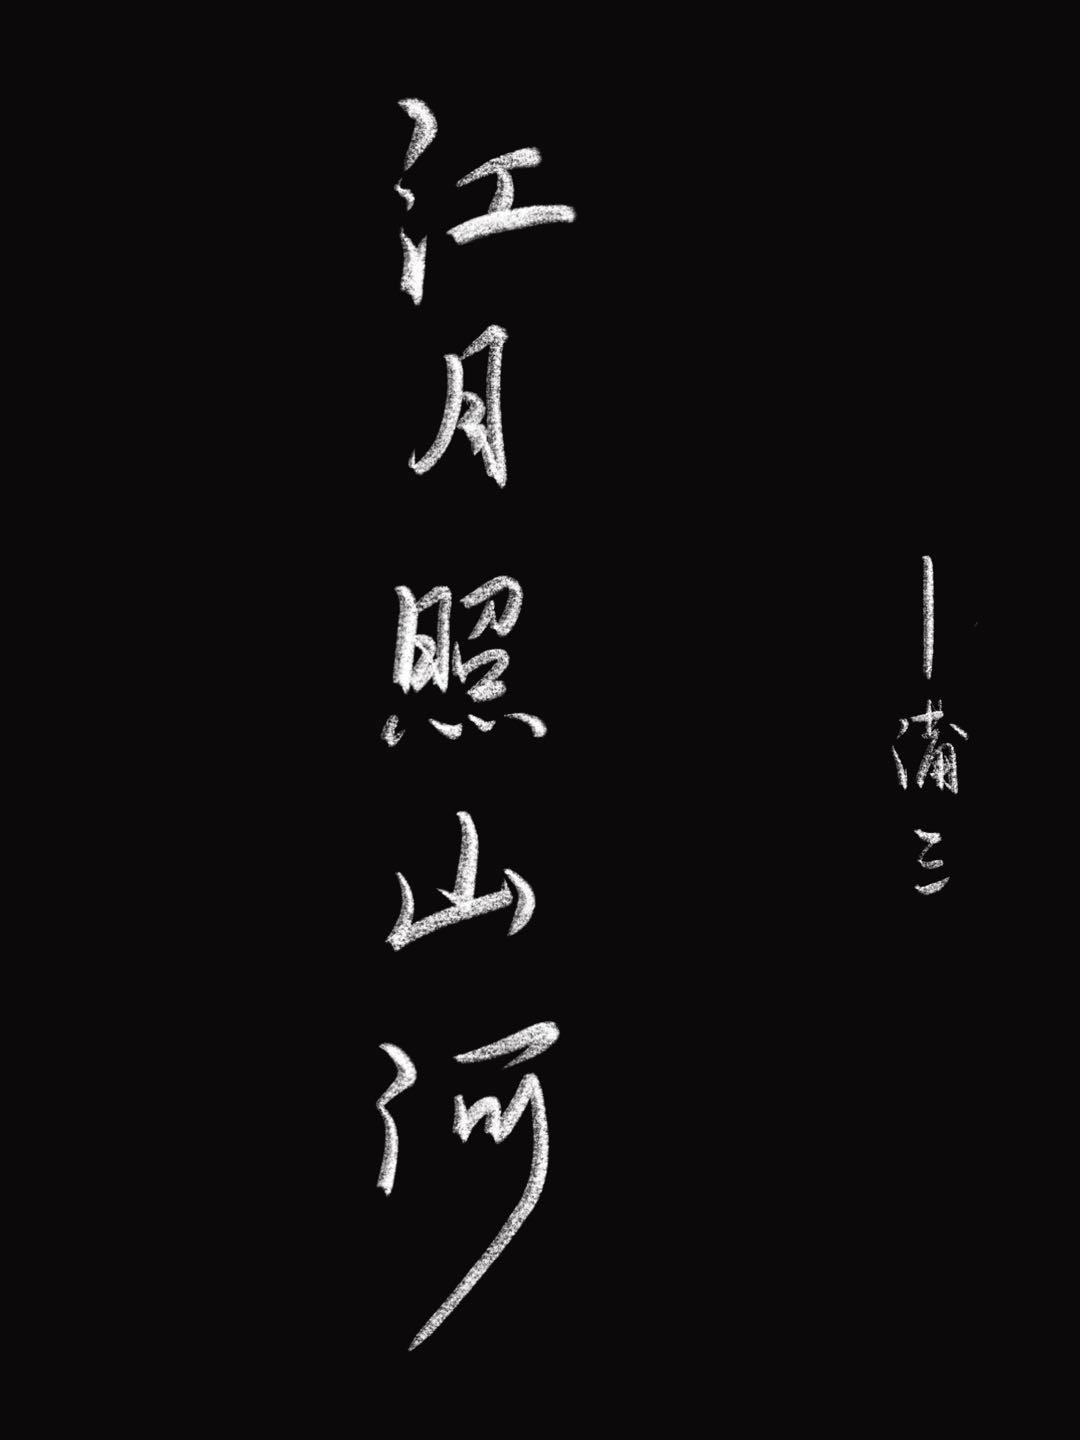 江月照山河
—浦三